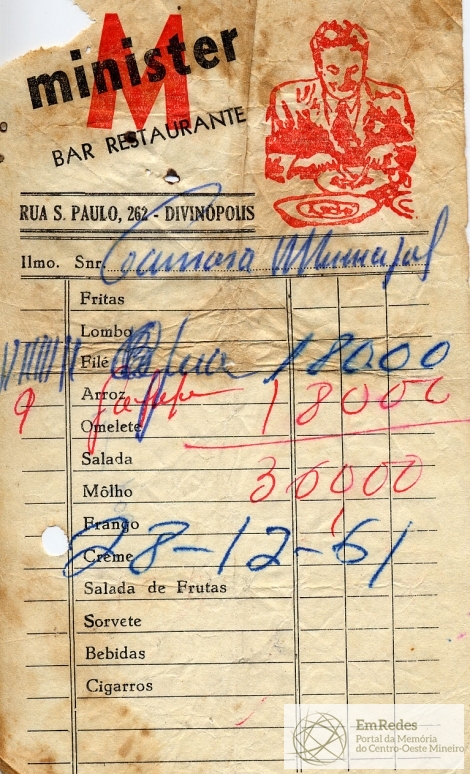 M
minister
BAR RESTAURANTE
RUA S. PAULO, 262 - DIVINÓPOLIS
Ilmo. Snr. Camara Municipal
Fritas
Lombo
Filé 18000
Arroz
9 18000
Omelete
Salada
36000
Môlho
Frango
28-12-61
Creme
Salada de Frutas
Sorvete
Bebidas
Cigarros
EmRedes
Portal da Memória
do Centro-Oeste Mineiro